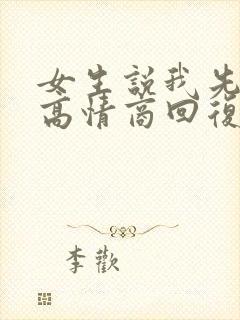 女生説我先
高情商回復
李歡